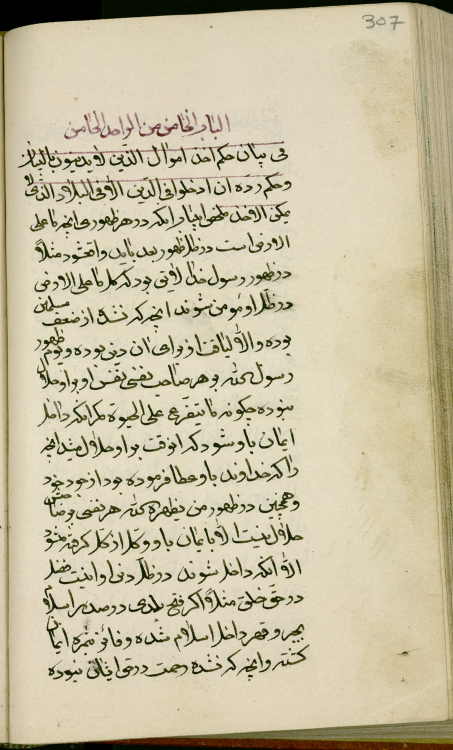 307
الباب الخامس من الواحد الخامس
فی بیان حکم اخذ اموال الذین لا یدینون بالبیان
و حکم رده ان ادخلوا فی الدین الا فی البلاد التی لا
یمکن الاخذ ملخص این باب آنکه در هر ظهوری آنچه ما علی
الارض است در ظل ظهور بعد باید واقع شود مثلا
در ظهور رسول خدا لایق بود که کل ما علی الارض
در ظل او مؤمن شوند آنچه که نشده از ضعف مسلمین
بوده والا لیاقت از برای آن دین بوده و یوم ظهور
رسول الله بر هر صاحب نفسی نفس او بر او حلال
نبوده چگونه ما یتفرع علی الحیوة مگر آنکه داخل
ایمان باو شود که آنوقت بر او حلال میشد آنچه
را که خداوند باو عطا فرموده بود از جود خود
و همچنین در ظهور من یظهره الله هر نفسی بر صاحبش
حلال نیست الا بایمان باو و کل از کل گرفته میشود
الا آنکه داخل شوند در ظل دین او اینست فضل
در حق خلق مثلا اگر فتح بلدی در صدر اسلام
بجبر و قهر داخل اسلام شده و فائز بثمره ایمان
گشته و آنچه که نشده رحمت در حق ایشان نبوده